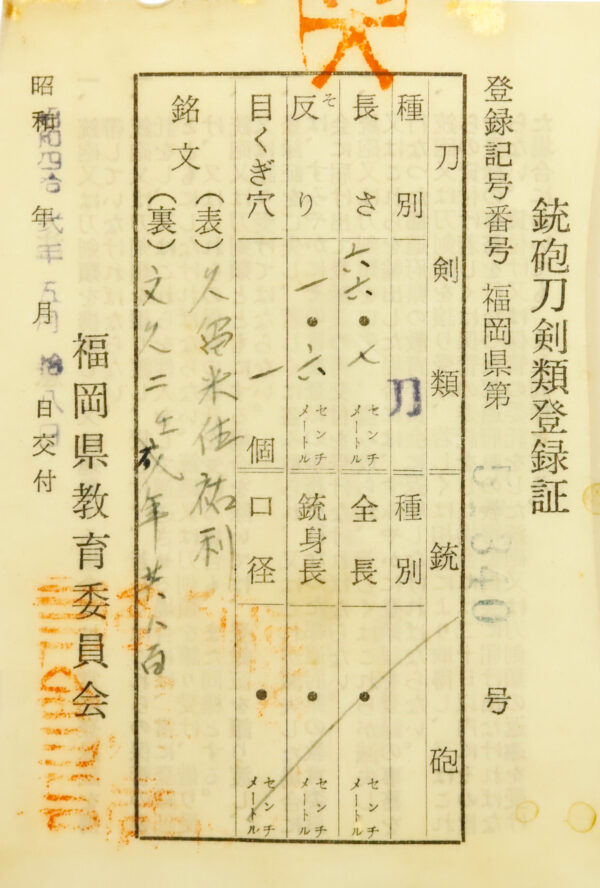 銃砲刀剣類登録証
登録記号番号 福岡県第 号
刀剣類 銃砲
種別 刀 種別
長さ 六六・七 センチメートル 全長 ・ センチメートル
反り そ 一・六 センチメートル 銃身長 ・ センチメートル
目くぎ穴 一個 口径 ・ センチメートル
銘文 (表) 久留米住祐利
(裏) 文久二壬戌年 八
福岡県教育委員会
昭和 年 五月 日交付